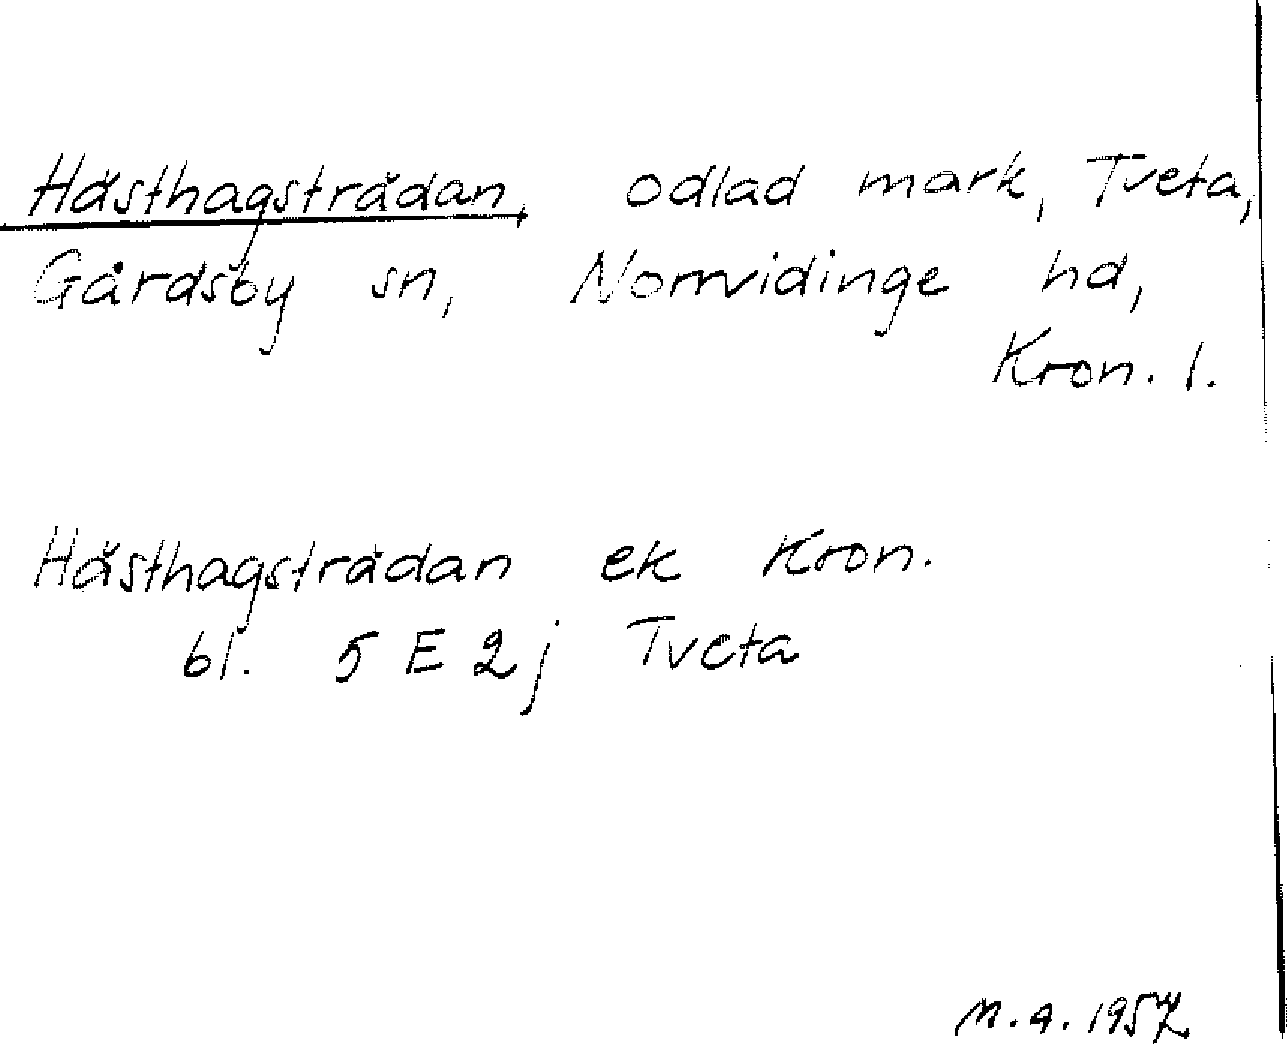 Hästhagsträdan, odlad mark, Tveta,
Gårdsby sn, Norrvidinge hd,
Kron. l.
Hästhagsträdan ek Kron.
bl. 5 E 2 j Tveta
M. A. 1957